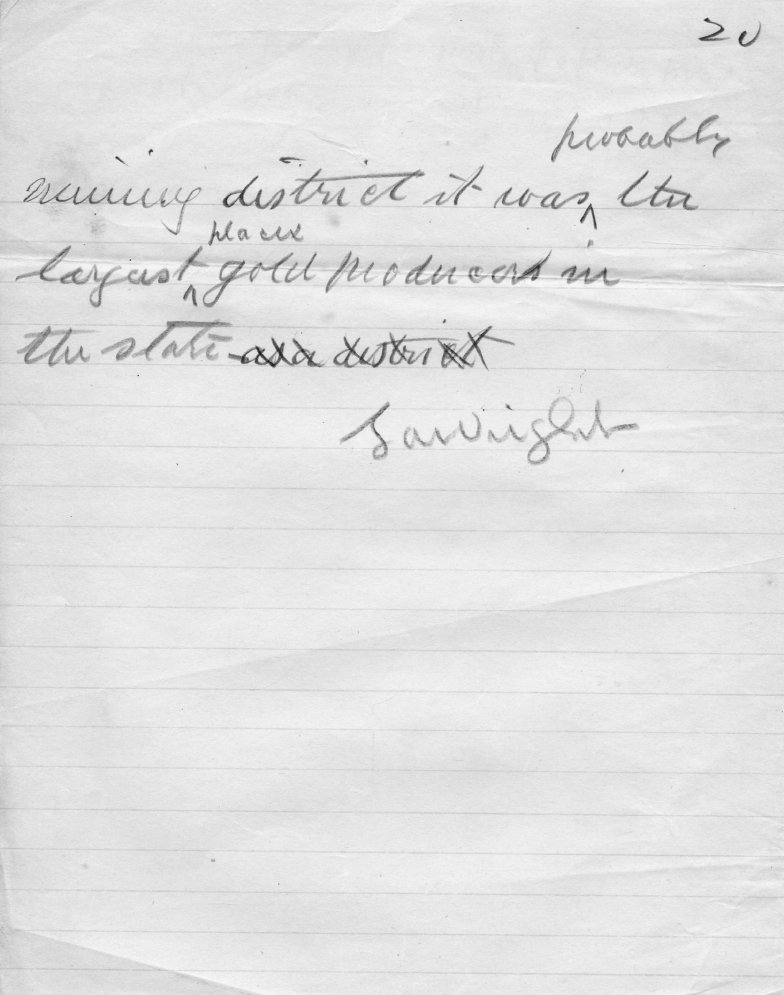 20
probably
mining district it was ^ the
placer
largest ^ gold producers in
the state as a district